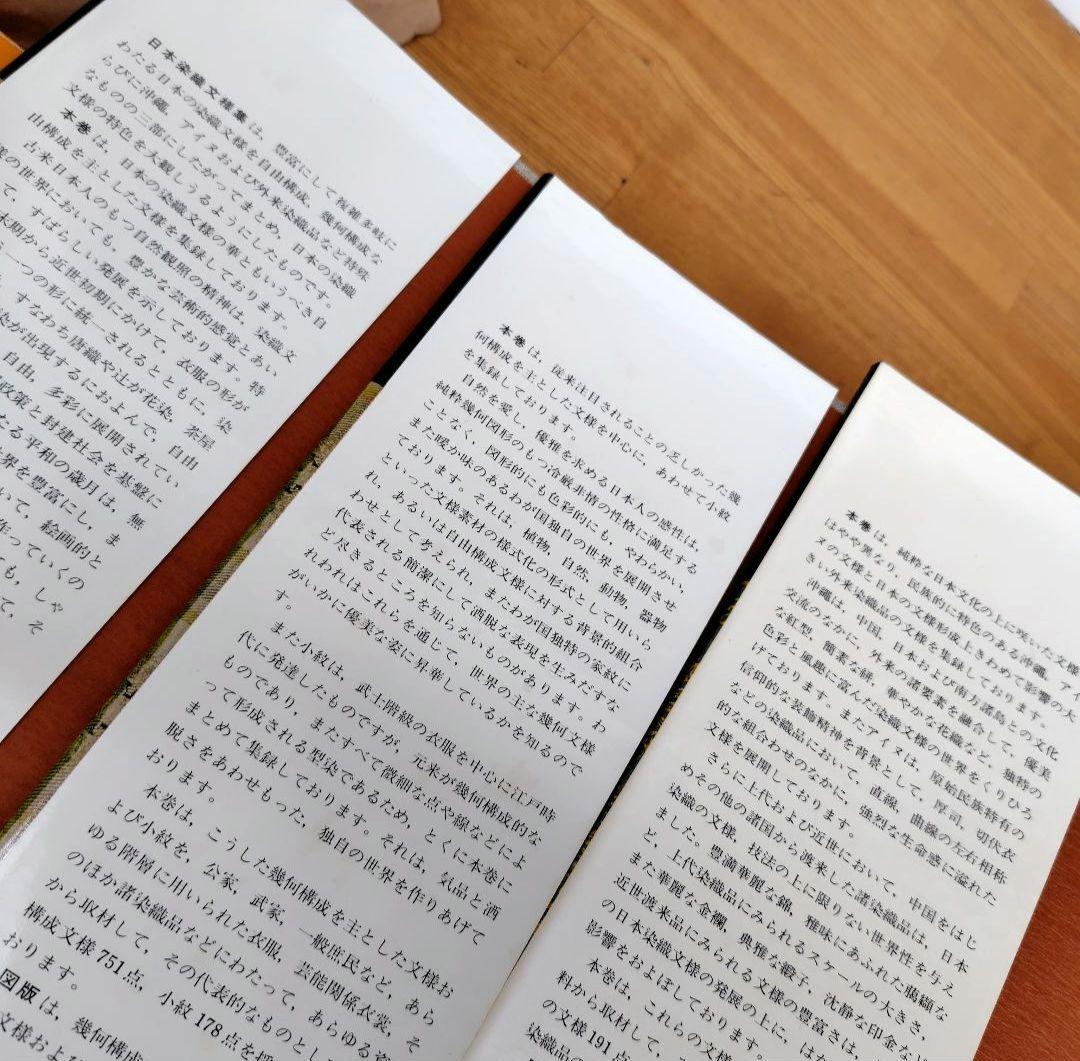 日本染織文様集は，豊富にして複雑多岐に
わたる日本の染織文様を自由構成，幾何構成な
らびに沖縄，アイヌおよび外来染織品など特殊
なものの三部にしたがってまとめ，日本の染織
文様の特色を大観しうるようにしたものです。
本巻は，日本の染織文様の華ともいうべき自
由構成を主とした文様を集録しております。
古来日本人のもつ自然観照の精神は，染織文
の世界においても，豊かな芸術的感覚とあい
て，すばらしい発展を示しております。特
末期から近世初期にかけて，衣服の形が
一つの形に統一されるとともに，染
すなわち唐織や辻が花染，茶屋
染が出現するにおよんで，自由
自由，多彩に展開されてい
政策と封建社会を基盤に
たる平和の歳月は，無
界を豊富にし，ま
いて，絵画的と
作っていくの
ても，しゃ
て，そ
本巻は，従来注目されることの乏しかった幾
何構成を主とした文様を中心に，あわせて小紋
を集録しております。
自然を愛し，優雅を求める日本人の感性は，
純粋幾何図形のもつ冷厳非情の性格に満足する
ことなく，図形的にも色彩的にも，やわらかい，
また暖か味のあるわが国独自の世界を展開させ
ております。それは，植物，自然，動物，器物
といった文様素材の様式化の形式として用いら
れ，あるいは自由構成文様に対する背景的組合
わせとして考えられ，またわが国独特の家紋に
代表される簡潔にして洒脱な表現を生みだすな
ど尽きるところを知らないものがあります。わ
れわれはこれらを通じて，世界の主な幾何文様
がいかに優美な姿に昇華しているかを知るので
す。
また小紋は，武士階級の衣服を中心に江戸時
代に発達したものですが，元来が幾何構成的な
ものであり，またすべて微細な点や線などによ
って形成される型染であるため，とくに本巻に
まとめて集録しております。それは，気品と洒
脱さをあわせもった，独自の世界を作りあげて
おります。
本巻は，こうした幾何構成を主とした文様お
よび小紋を，公家，武家，一般庶民など，あら
ゆる階層に用いられた衣服，芸能関係衣裳，そ
のほか諸染織品などにわたって，あらゆる資
から取材して，その代表的なものとして
構成文様751点，小紋178点を
おります。
図版は，幾何構成
文様およ
本巻は，純粋な日本文化の上に咲いた文様
はやや異なり，民族的に特色のある沖縄，アイ
ヌの文様と日本の文様形成上きわめて影響の大
きい外来染織品の文様を集録しております。
沖縄は，中国，日本および南方諸島との文化
交流のなかに，外来の諸要素を融合して，優美
な紅型，簡素な絣，華やかな花織など，独特の
色彩と風趣に富んだ染織文様の世界をくりひろ
げております。またアイヌは，原始民族特有の
信仰的な装飾精神を背景として，厚司，切伏衣
などの染織品において，直線，曲線の左右相称
的な組合わせのなかに，強烈な生命感に溢れた
文様を展開しております。
さらに上代および近世において，中国をはじ
めその他の諸国から渡来した諸染織品は，日本
染織の文様，技法の上に限りない世界性を与え
ました。豊満華麗な錦，雅味にあふれた﨟纈な
ど，上代染織品にみられるスケールの大きさ，
また華麗な金襴，典雅な緞子，沈静な印金な
近世渡来品にみられる文様の豊富さは，
の日本染織文様の発展の上に，は
影響をおよぼしております。
本巻は，これらの文様
料から取材して，
の文様191点
染織品の